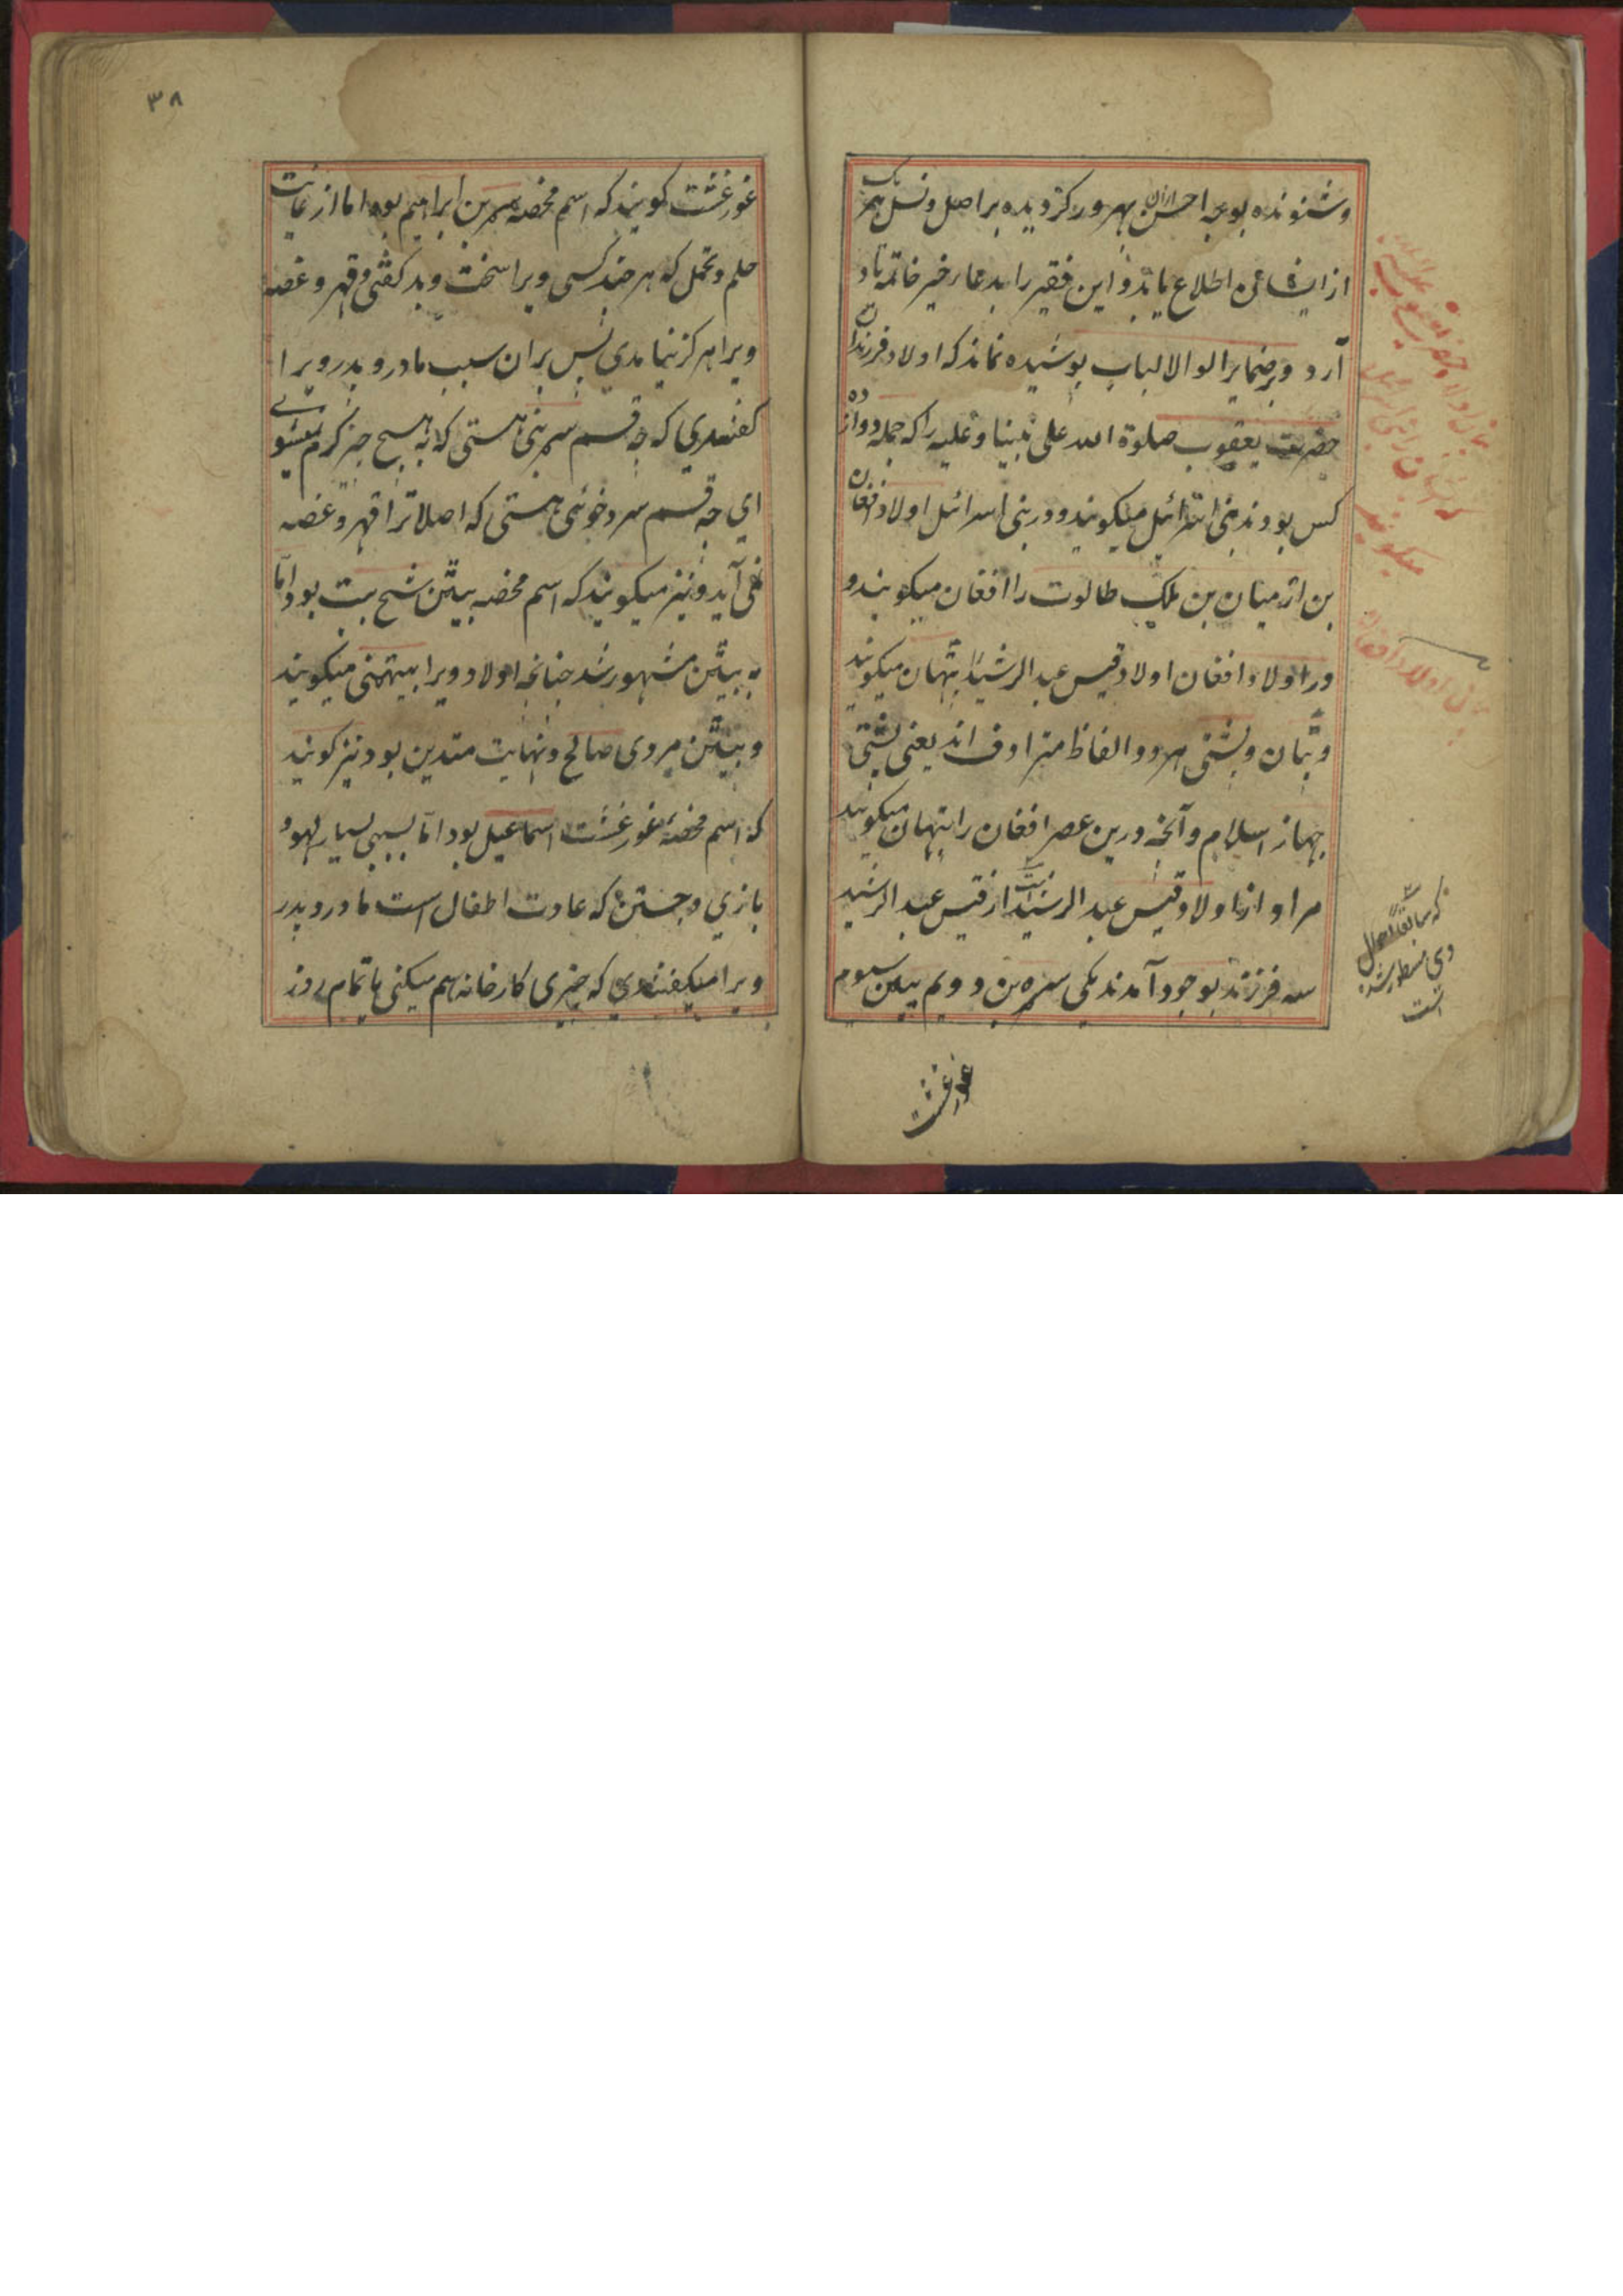 و شنونده بوجه احسن ازان بهرور گردیده بر اصل و نسل هر یک
از ایشان اطلاع یابد و این فقیر را بدعاء خیر خاتمه یاد
آرد و بر ضمایر الو الالباب پوشیده نماند که اولاد فرزندان
حضرت یعقوب صلوة الله علی نبینا و علیه را که جمله دوازده
کس بودند بنی اسرائیل میگویند و در بنی اسرائیل اولاد افغان
بن ارمیان بن ملک طالوت را افغان میگویند و
در اولاد افغان اولاد قیس عبد الرشید را پتهان میگویند
و پتان و پشتی هر دو الفاظ مترادف اند یعنی پشتی
جهاز اسلام و آنچه درین عصر افغان را پتهان میگویند
مراد ازان اولاد قیس عبد الرشید است از قیس عبد الرشید
سه فرزند بوجود آمدند یکی سره بن دویم بیتن سیوم
غورغشت
که سابقا احوال
وی مسطور شده
است
میگویند
۳۸
غورغشت گویند که اسم محضه سربن ابراهیم بود اما از غایت
حلم و تحمل که هر چند کسی ویرا سخت و بد گفتی و قهر و غصه
ویرا هرگز نیامدی پس بران سبب مادر و پدر ویرا
گفتندی که چه قسم سربنی هستی که به هیچ چیز گرم نمیشوی
ای چه قسم سرد خوئی هستی که اصلا ترا قهر و غصه
نمی آید و نیز میگویند که اسم محضه بیتن شیخ بیت بود اما
به بیتن مشهور شد چنانچه اولاد ویرا بیتهنی میگویند
و بیتن مردی صالح و نهایت متدین بود نیز گویند
که اسم محضه غورغشت اسماعیل بود اما بسببی بسیار لهو و
بازی و جستن که عادت اطفال است مادر و پدر
ویرا میگفتندی که چیزی کارخانه هم میکنی یا تمام روز